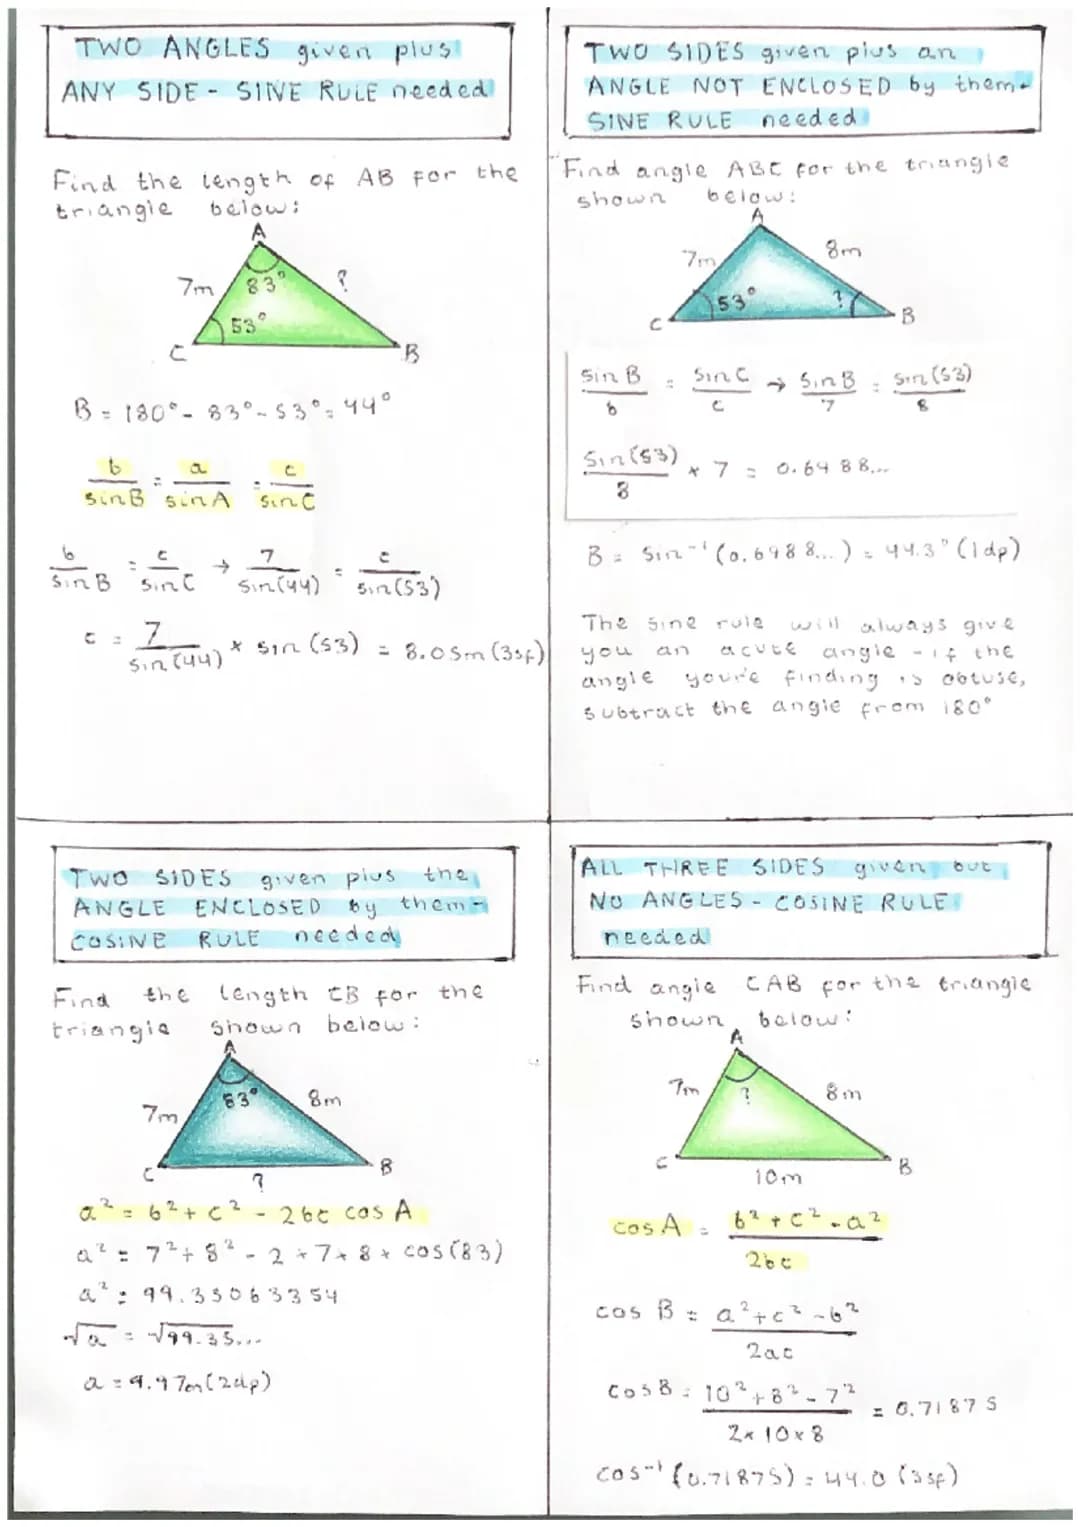 TWO ANGLES given plus
ANY SIDE - SINE RULE needed
Find the length of AB for the
triangle below:
A
7m
83°
?
53°
C
B
B = 180° - 83° - 53° = 44°
b/sinB = a/sinA = c/sinC
b/sinB = c/sinC → 7/sin(44) = c/sin(53)
c = 7/sin(44) × sin(53) = 8.05m (3sf)
TWO SIDES given plus an
ANGLE NOT ENCLOSED by them-
SINE RULE needed
Find angle ABC for the triangle
shown below:
A
7m
8m
53°
?
C
B
sin B/b = sin C/c → sin B/7 = sin(53)/8
sin(53)/8 × 7 = 0.6988...
B = sin⁻¹(0.6988...) = 44.3° (1dp)
The sine rule will always give
you an acute angle - if the
angle you're finding is obtuse,
subtract the angle from 180°
TWO SIDES given plus the
ANGLE ENCLOSED by them-
COSINE RULE needed
Find the length CB for the
triangle shown below:
A
83°
7m
8m
C
B
?
a² = b² + c² - 2bc cos A
a² = 7² + 8² - 2 × 7 × 8 × cos(83)
a² = 99.35063354
√a = √99.35...
a = 9.97m (2dp)
ALL THREE SIDES given but
NO ANGLES - COSINE RULE
needed
Find angle CAB for the triangle
shown below:
A
7m
?
8m
C
B
10m
cos A = b² + c² - a²/2bc
cos B = a² + c² - b²/2ac
cos B = 10² + 8² - 7²/2 × 10 × 8 = 0.71875
cos⁻¹(0.71875) = 44.0 (3sf)